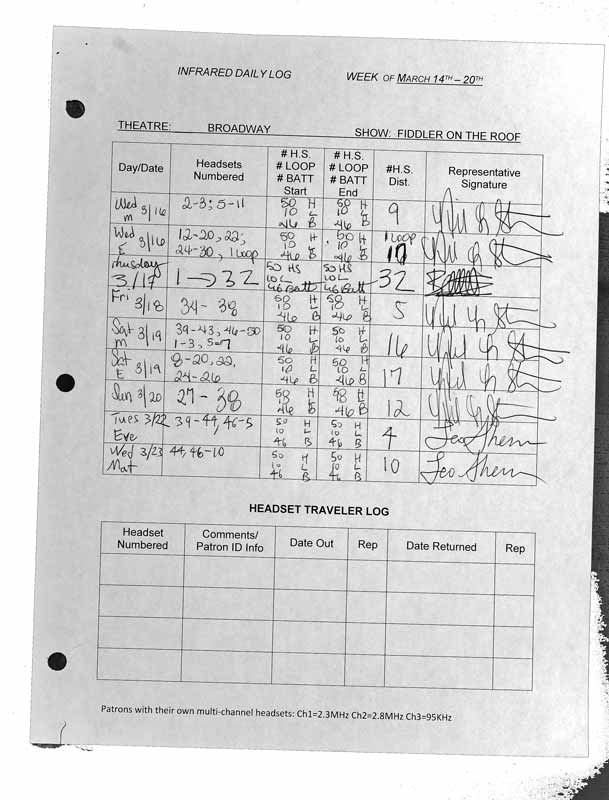 INFRARED DAILY LOG WEEK OF MARCH 14TH – 20TH
THEATRE: BROADWAY SHOW: FIDDLER ON THE ROOF
Day/Date Headsets Numbered # H.S. # LOOP # BATT Start # H.S. # LOOP # BATT End #H.S. Dist. Representative Signature
Wed 3/16 M 2-3; 5-11 50 H 10 L 46 B 50 H 10 L 46 B 9
Wed 3/16 E 12-20, 22; 24-30, 1 loop 50 H 10 L 46 B 50 H 10 L 46 B 1 Loop 17
Thursday 3/17 1 → 32 50 HS 10 L 46 Batt 50 HS 10 L 46 Batt 32
Fri 3/18 34-38 50 H 10 L 46 B 50 H 10 L 46 B 5
Sat 3/19 M 39-43, 46-50 1-3, 5-7 50 H 10 L 46 B 50 H 10 L 46 B 16
Sat E 3/19 8-20, 22, 24-26 50 H 10 L 46 B 50 H 10 L 46 B 17
Sun 3/20 27-38 50 H 10 L 46 B 50 H 10 L 46 B 12
Tues 3/22 Eve 39-44, 46-5 50 H 10 L 46 B 50 H 10 L 46 B 4
Wed 3/23 Mat 44, 46-10 50 H 10 L 46 B 50 H 10 L 46 B 10
HEADSET TRAVELER LOG
Headset Numbered Comments/ Patron ID Info Date Out Rep Date Returned Rep
Patrons with their own multi-channel headsets: Ch1=2.3MHz Ch2=2.8MHz Ch3=95KHz